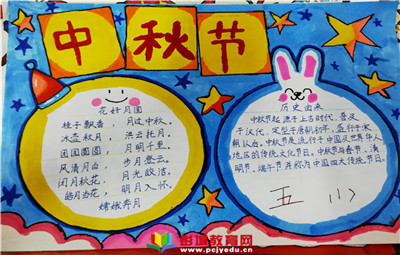 中秋节
花好月圆
桂子飘香， 月过中秋。
冰壶秋月， 洪云托月。
团团圆圆， 月明千里。
风清月白， 步月登云。
闭月秋花， 月光皎洁。
皓月当花， 明月入怀。
嫦娥奔月
历史由来
中秋节起源于上古时代，普及
于汉代，定型于唐朝初年，盛行于宋
朝以后。中秋节是流行于中国及世界华人
地区的传统文化节日。中秋节与春节、清
明节、端午节并称为中国四大传统节日。
五 小
教育网
www.pcjyedu.com